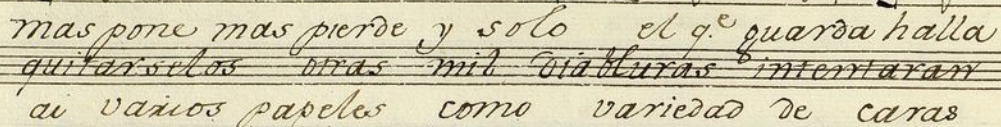 mas pone mas pierde y solo el q.e guarda halla
quitarselos otras mil diabluras intentaran
ai varios papeles como variedad de caras